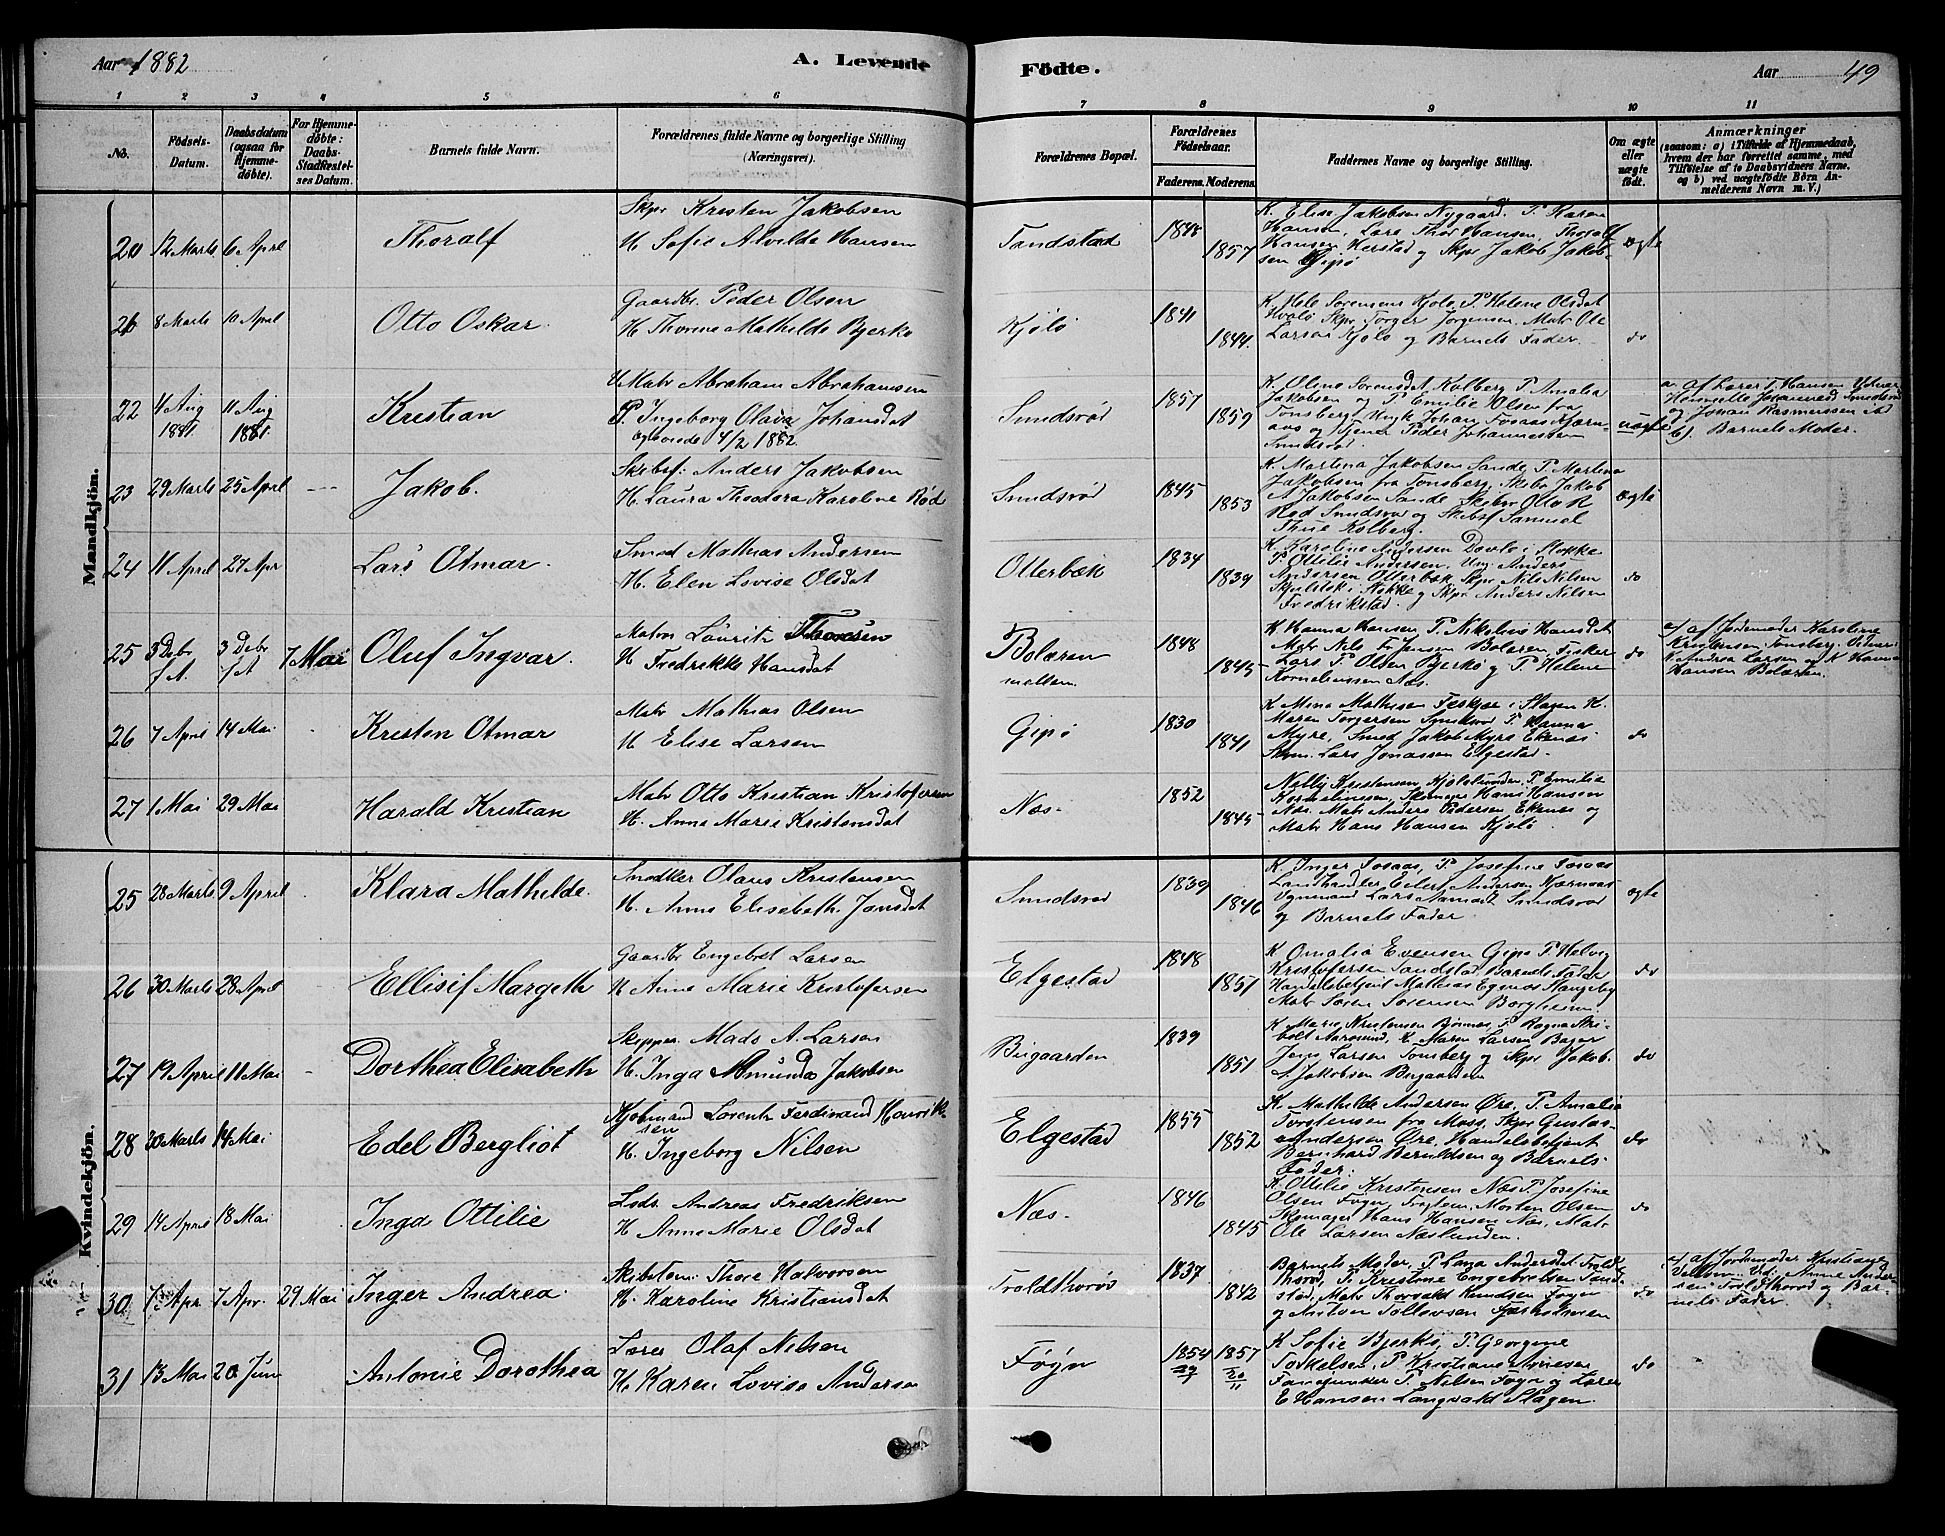 Aar 1882
A. Levende
Födte.
Aar 49
1 2 3 4 5 6 7 8 9 10 11
No.
Födsels-Datum.
Daabsdatum (ogsaa for Hjemme-döbte).
For Hjemme-döbte: Daabs-Stadfæstel-ses Datum.
Barnets fulde Navn.
Forældrenes fulde Navne og borgerlige Stilling (Næringsvei).
Forældrenes Bopæl.
Forældrenes Födselsaar.
Faderens. Moderens.
Faddernes Navne og borgerlige Stilling.
Om ægte eller uægte födt.
Anmærkninger
(saasom: a) i Tilfælde af Hjemmedaab, hvem der har forrettet samme, med Tilföielse af to Daabsvidners Navne, og b) ved uægtefödte Börn An-melderens Navn m. V.)
Mandkjön.
20 12 Marts 6 April Thoralf
Skpr Kresten Jakobsen
H. Sofie Alvilde Hansen
Tandstad 1857
K. Elise Jakobsen Nygaard. P. Karen
Hansen, Lars Thor Hansen, Thoralf
Hansen Herstad og Skpr Jakob Jakob-
sen Gipø
ægte
21 8 Marts 10 April Otto Oskar.
Gaardbr. Peder Olsen
H. Thomine Mathilde Bjerkø
Kjølø 1841 1844.
K. Hele Sørensen Kjølø, P. Helene Olsdat
Hvalø Skpr Torger Jørgensen, Matr Ole
Larsen Kjølø og Barnets Fader.
do
22 4 Aug 1881. 11 Aug 1881. Kristian
U. Matr Abraham Abrahamsen
P. Ingeborg Olava Johansdat
egteviede 4/2 1882
Smidsrød 1857 1859
K. Oline Sorensdat, Kolberg P. Amalia
Jakobsen og P. Emilie Olsen fra
Tønsberg, Ungk Johan Fosaas Kjærn-
aas og Tjener Peder Johannessen
Smidsrød.
uægte
a. af Lærer T. Hansen Vidner
Henriette Johannesd Smidsrød
og Johan Rasmussen ibd
b). Barnets Moder.
23 29 Marts 25 April Jakob.
Skibsf. Anders Jakobsen
H. Laura Theodora Karoline Rød
Smidsrød 1845 1853
K. Martina Jakobsen Sande, P. Martina
Jakobsen fra Tønsberg, Skibr Jakob
A Jakobsen Sande Skibr Olo R
Rød Smidsrød og Skibsf Samuel
Thue Kolberg.
ægte
24 11 April 27 Apr Lars Otmar.
Smed Mathias Andersen
H. Elen Lovise Olsdat
Otterbæk 1834 1839
K. Karoline Andersen Døvle i Stokke
P. Ottilie Andersen, Ung. Anders
Andersen Otterbæk, Skpr Nils Nilsen
Skjelstok i Stokke og Skpr Anders Nilsen
Fredrikstad.
do
25 3 Debr f.A. 3 Debr f.A 7 Mai Oluf Ingvar.
Matros Lauritz Thoresen
H Fredrikke Hansdat
Bolæren mellem. 1848 1845
K Hanna Hansen P. Nikoline Hansdat
Matr Nils F. Jensen Bolæren, Fisker
Lars P. Olsen Bjerkø og P. Helene
Korneliussen Næs.
do
a/ af Jordemoder Karoline
Kristensen Tønsberg. Vidner:
K. Andrea Larsen og K Hanna
Hansen Bolæren.
26 7 April 14 Mai Kresten Otmar
Matr Mathias Olsen
H Elise Larsen
Gipø 1830 1841
K Mina Mathisen Feskjær i Slagen K.
Maren Torgersen Smidsrød P. Hanna
Myre, Smed Jakob Myre Ekenes
Skm. Lars Jonassen Elgestad.
do
27 1 Mai 29 Mai Harald Kristian
Matr Otto Kristian Kristofersen
H. Anne Marie Kristensdat
Næs. 1852 1845
Nelly Kristensen Kjølelunden, P. Emilie
Korneliussen, Skomager Hans Hansen
Næs. Matr Anders Pedersen Ekenes og
Matr Hans Hansen Kjølø
Kvindekjön.
25 28 Marts 9 April Klara Mathilde.
Snedker Olaus Kristensen
H. Anne Elisebeth Jansdat
Smidsrød 1839 1846
K. Inger Fosaas, P. Josefine Fosaas
Landhandler Eilert Andersen Kjærnaas
Vognmand Lars Aamodt Smidsrød
og Barnets Fader
ægte
26 30 Marts 28 April Ellisif Margeth
Gaardbr Engebret Larsen
H Anne Marie Kristofersen
Elgestad 1848 1851
K Amalia Evensen Gipø P. Helvig
Kristofersen Tandstad, Barnets Fader
Handelsbetjent Mathias Egenæs Slangeby
Matr Søren Sørensen Borgheim.
do
27 19 April 11 Mai Dorthea Elisabeth
Skipper Mads A. Larsen
H. Inga Amunda Jakobsen
Bugaarden 1839 1851
K Marie Kristensen Bjønnes P. Ragna Kri-
bolt Aarøsund, K. Maren Larsen Bager
Jens Larsen Tønsberg og Skpr Jakob
A. Jakobsen Bugaarden
do
28 30 Marts 14 Mai Edel Bergliot
Kjøbmand Lorents Ferdinand Henrik-
sen
H. Ingeborg Nilsen
Elgestad 1855 1852
K. Mathilde Andersen Øre, P. Amalie
Torstensen fra Moss, Skpr Gustav
Andersen Øre, Handelsbetjent
Bernhard Berntdsen og Barnets
Fader.
do
29 14 April 18 Mai Inga Ottilie
Lods. Andreas Fredriksen
H Anne Marie Olsdat
Næs. 1846 1845
K. Ottilie Kristensen Næs P. Josefine
Olsen Føyn Fragtem. Morten Olsen
Skomager Hans Hansen Næs, Matr
Ole Larsen Næslunden.
do
30 7 Apr 7 Apr. 29 Mai Inger Andrea.
Skibstøm. Thore Halvorsen
H. Karoline Kristiansdat
Troldthorød 1837 1842
Barnets Moder, P. Lana Andersdat Trold-
thorød, P. Kristine Engebretsen Tand-
stad, Matr Thorvald Knudsen Føyn
og Anton Tollefsen
do
a/ af Jordemoder Kristiane
Vidner: Anne Ander-
sen Troldthorød og Bar-
nets Fader.
31 13 Mai 20 Juni Antonie Dorothea
Lærer Olaf Nilsen
H Karen Lovise Andersen
Føyn 1854 1857 20/11
K Sofie Bjerkø, P. Georgine
Torkelsen, P Kristiane
P. Nilsen Føyn og Lærer
E Hansen Langvald Slagen.
do